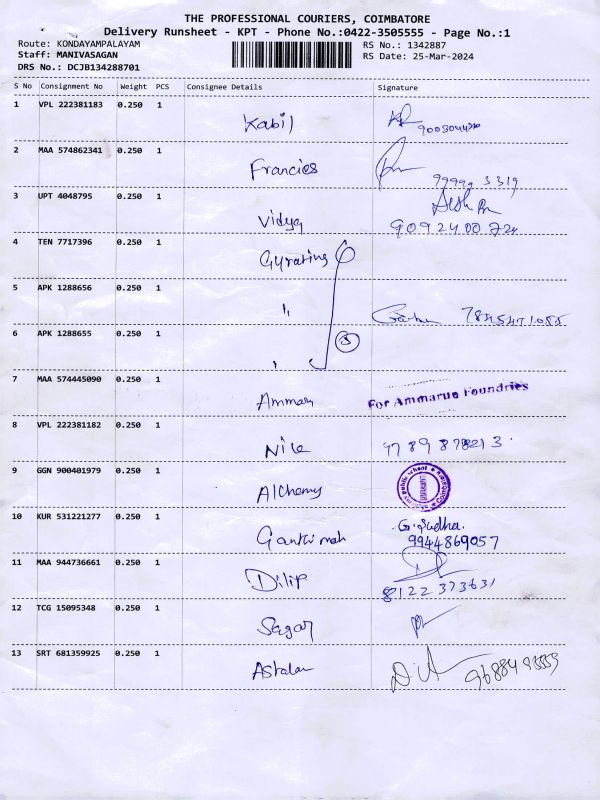 THE PROFESSIONAL COURIERS, COIMBATORE
Delivery Runsheet - KPT - Phone No.:0422-3505555 - Page No.:1
Route: KONDAYAMPALAYAM RS No.: 1342887
Staff: MANIVASAGAN RS Date: 25-Mar-2024
DRS No.: DCJB134288701
S No Consignment No Weight PCS Consignee Details Signature
1 VPL 222381183 0.250 1 Kabil
2 MAA 574862341 0.250 1 Francies
3 UPT 4048795 0.250 1 Vidya
4 TEN 7717396 0.250 1 Gyrating
5 APK 1288656 0.250 1 "
6 APK 1288655 0.250 1 3
7 MAA 574445090 0.250 1 For Ammarun Foundries
8 VPL 222381182 0.250 1
9 GGN 900401979 0.250 1 Alchemy
10 KUR 531221277 0.250 1 G. Sudha.
9944869057
11 MAA 944736661 0.250 1 Dilip
8122373631
12 TCG 15095348 0.250 1 Sagar
13 SRT 681359925 0.250 1